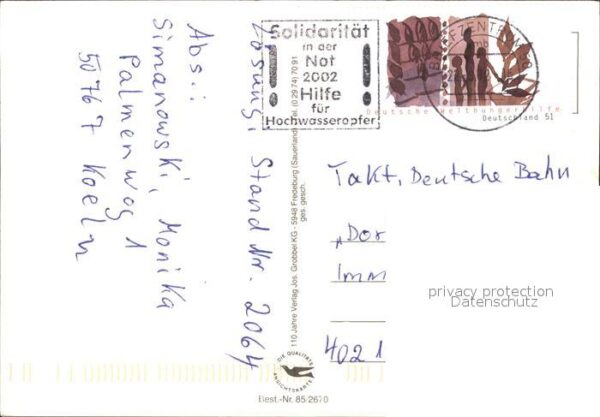 Abs.:
Simanowski, Monika
Palmenweg 1
50767 Koeln
Lösung, Stand Nr. 2064
110 Jahre Verlag Jos. Grobbel KG - 5948 Fredeburg (Sauerland) Tel. (0 29 74) 70 91
ges. gesch.
DIE QUALITÄTS
ANSICHTSKARTE
Best.-Nr. 85 2670
Solidarität
in der
Not
2002
Hilfe
für
Hochwasseropfer
Deutsche Welthungerhilfe
Deutschland 51
Takt, Deutsche Bahn
„Dor
Imm
4021
privacy protection
Datenschutz